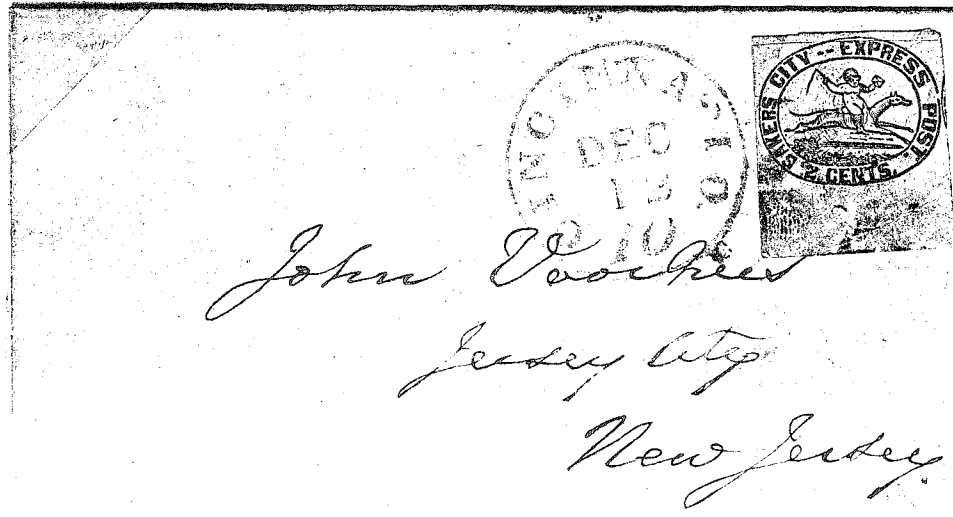 SIKERS CITY -- EXPRESS POST
2 CENTS.
DEC
10
John Voorhees
Jersey City
New Jersey